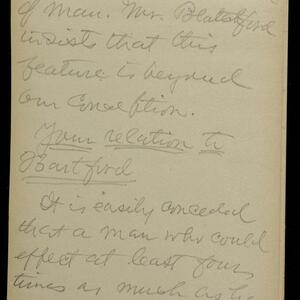 of man. Mr. Blatchford
insists that this
feature is beyond
our conception.
Your relation to
Hartford
It is easily conceded
that a man who could
effect at least four
times as much as he